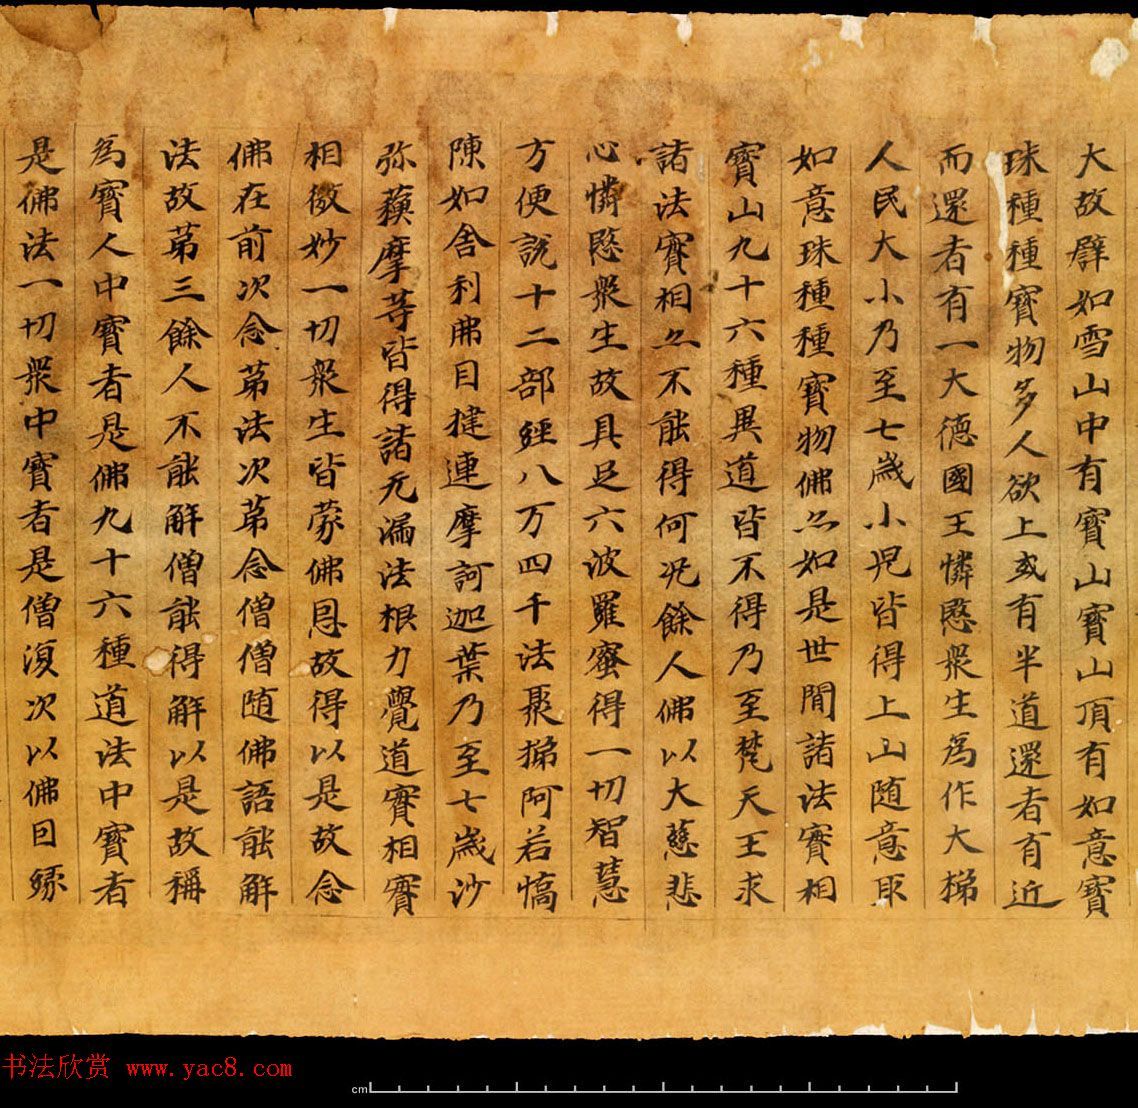 大故譬如雪山中有寶山寶山頂有如意寶
珠種種寶物多人欲上或有半道還者有近
而還者有一大德國王憐愍衆生為作大梯
人民大小乃至七歲小兒皆得上山随意取
如意珠種種寶物佛亦如是世間諸法實相
寶山九十六種異道皆不得乃至梵天王求
諸法實相亦不能得何况餘人佛以大慈悲
心憐愍衆生故具足六波羅蜜得一切智慧
方便說十二部經八万四千法聚梯阿若憍
陳如舍利弗目揵連摩訶迦葉乃至七歲沙
弥蘓摩等皆得諸无漏法根力覺道實相實
相微妙一切衆生皆蒙佛恩故得以是故念
佛在前次念苐法次苐念僧僧随佛語能解
法故苐三餘人不能解僧能得解以是故稱
為寶人中寶者是佛九十六種道法中寶者
是佛法一切衆中寶者是僧復次以佛因緣
书法欣赏 www.yac8.com
cm